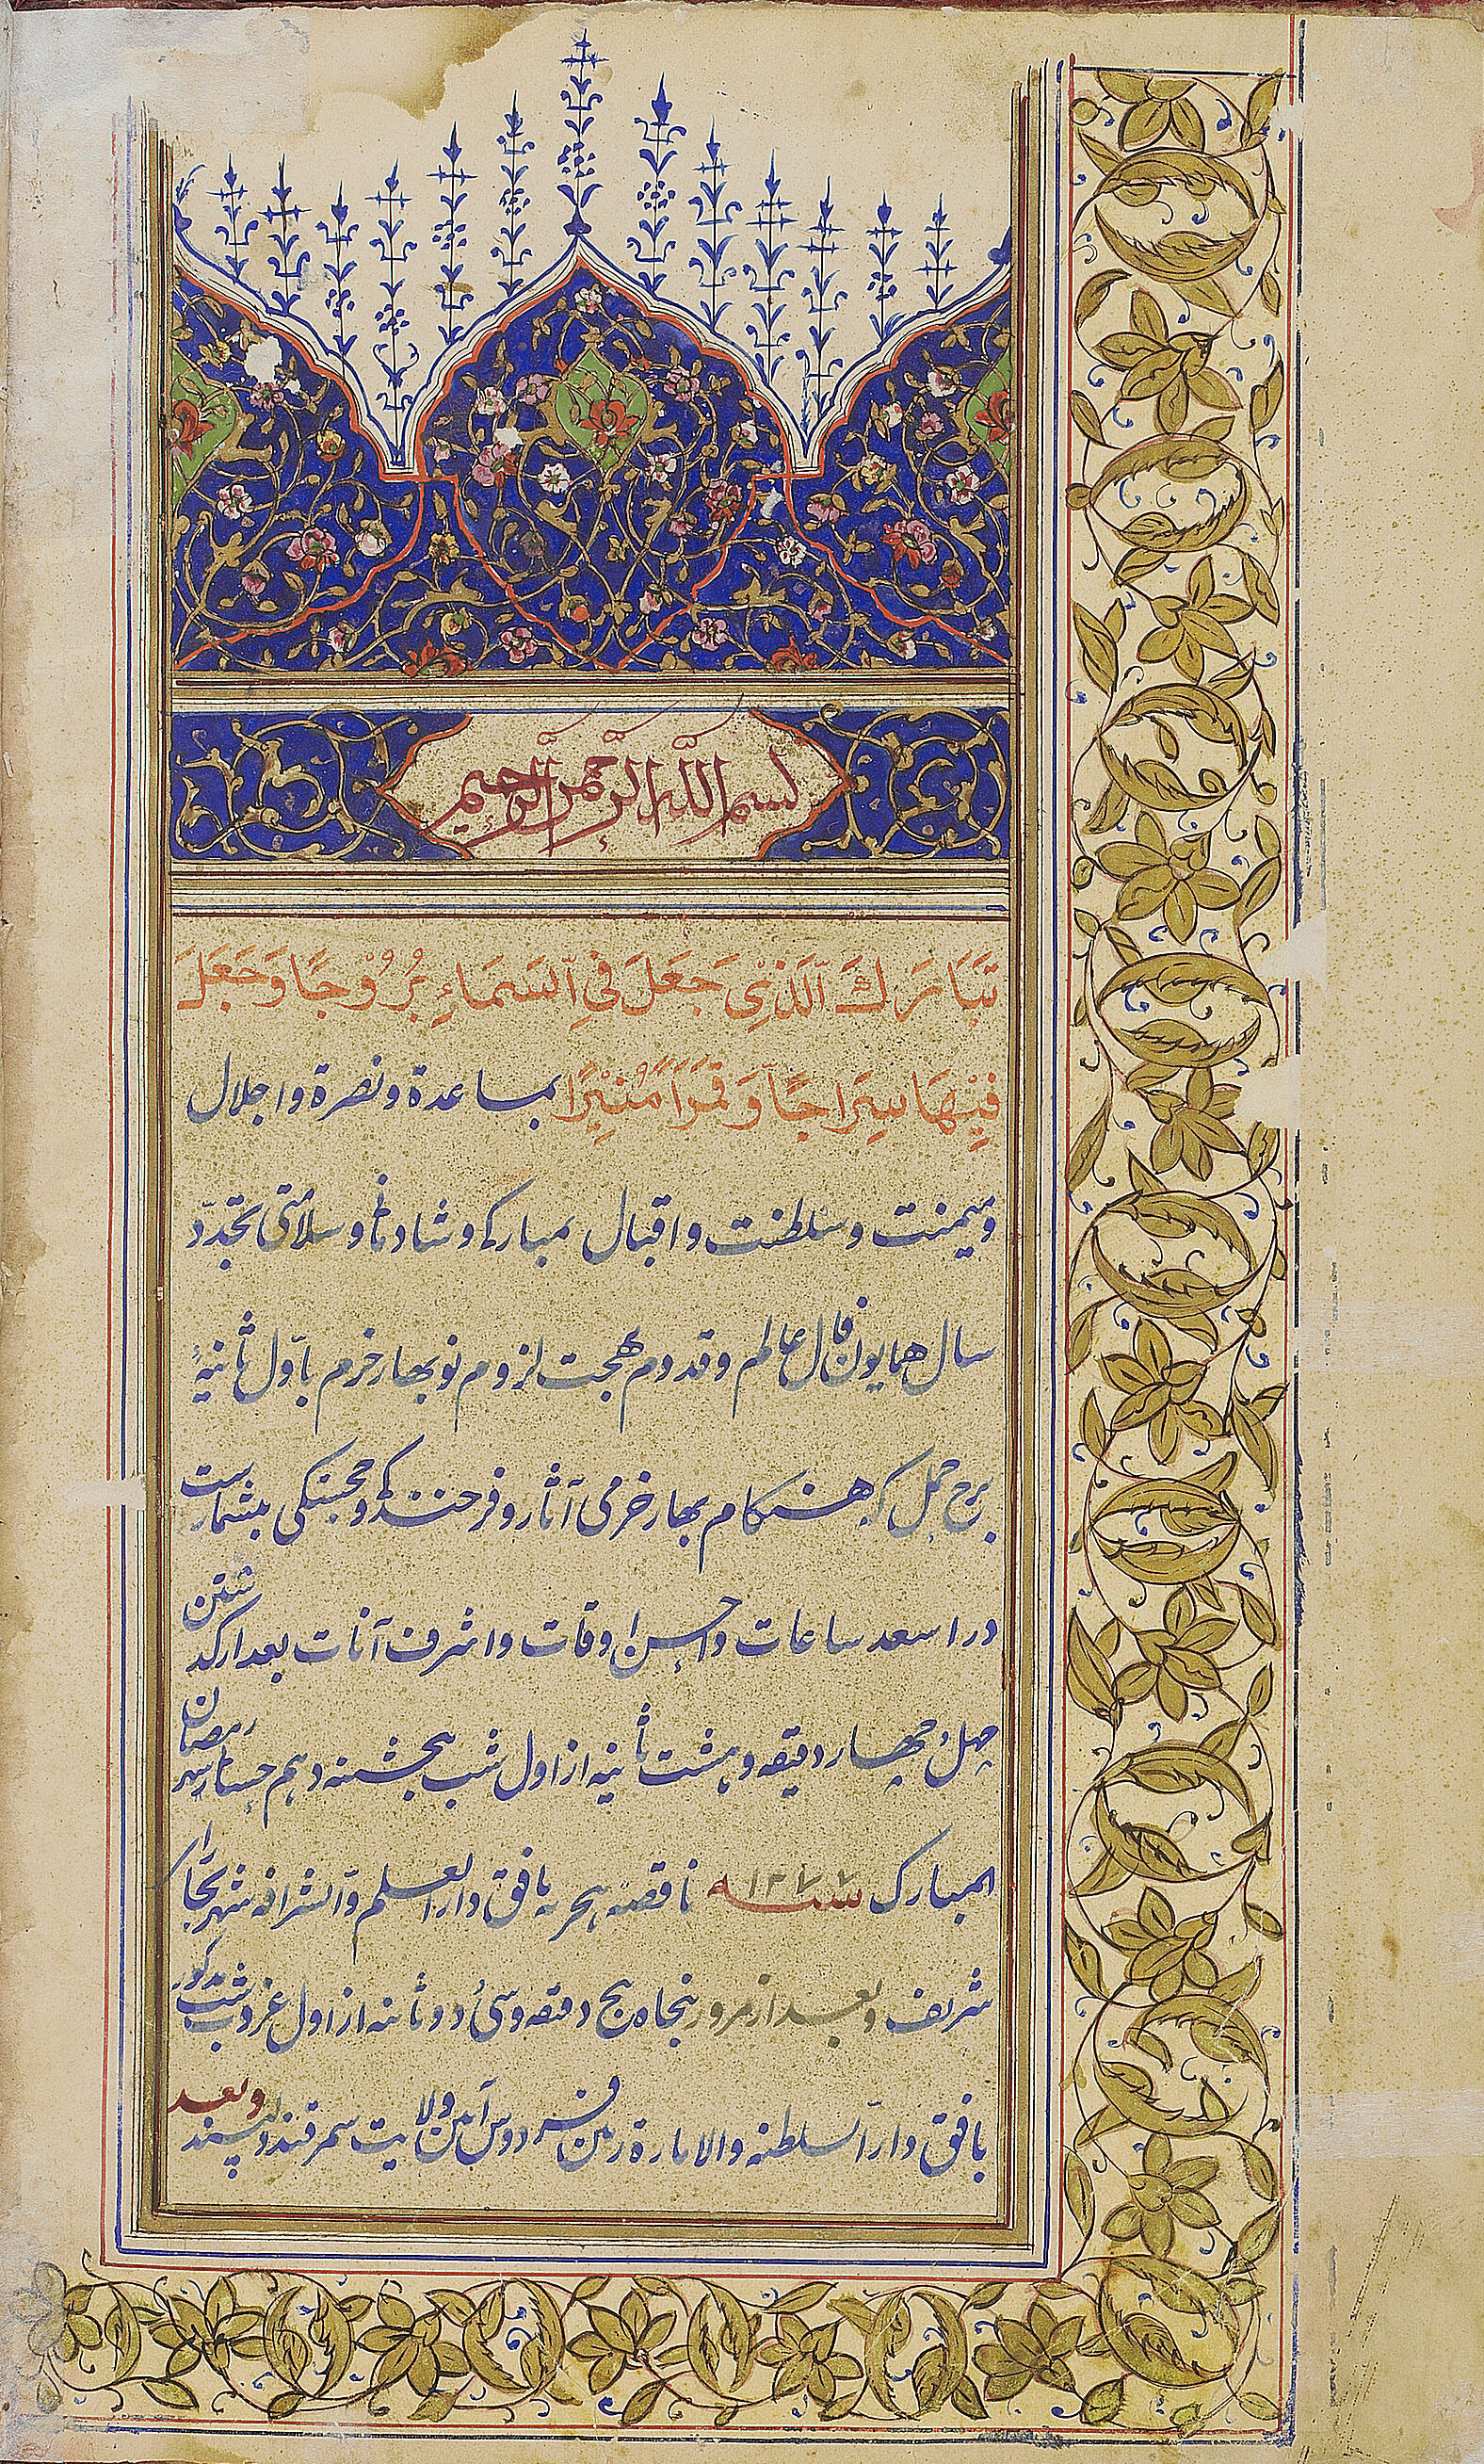 بسم الله الرحمن الرحيم
تَبَارَكَ الَّذِيْ جَعَلَ فِي السَّمَاءِ بُرُوْجًا وَجَعَلَ
فِيْهَا سِرَاجًا وَّقَمَرًا مُّنِيْرًا بمساعدة ونصرة واجلال
وميمنت وسلطنت واقبال بمباركى وشادمانى وسلامتى تجدّد
سال همايون فال عالم وقدوم بهجت لزوم نوبهار خرم باوّل ثانيهٔ
برج حمل كه هنگام بهار خرمى آثار وفرخندگى وخجستگى بيشمارست
در اسعد ساعات واحسن اوقات واشرف آنات بعد از گذشتن
چهل وچهار دقيقه وهشت ثانيه از اول شب پنجشنبه دهم رمضان
المبارك سنه ١٢٧٧ ناقصه هجريه بافق دار العلم والشرافه شهر بخاراى
شريف وبعد از مرور پنجاه پنج دقيقه وسى ودو ثانيه از اول غروب شب مذكور
بافق دار السلطنه والاماره زمين فردوس آئين ولايت سمرقند دلپسند وبعد